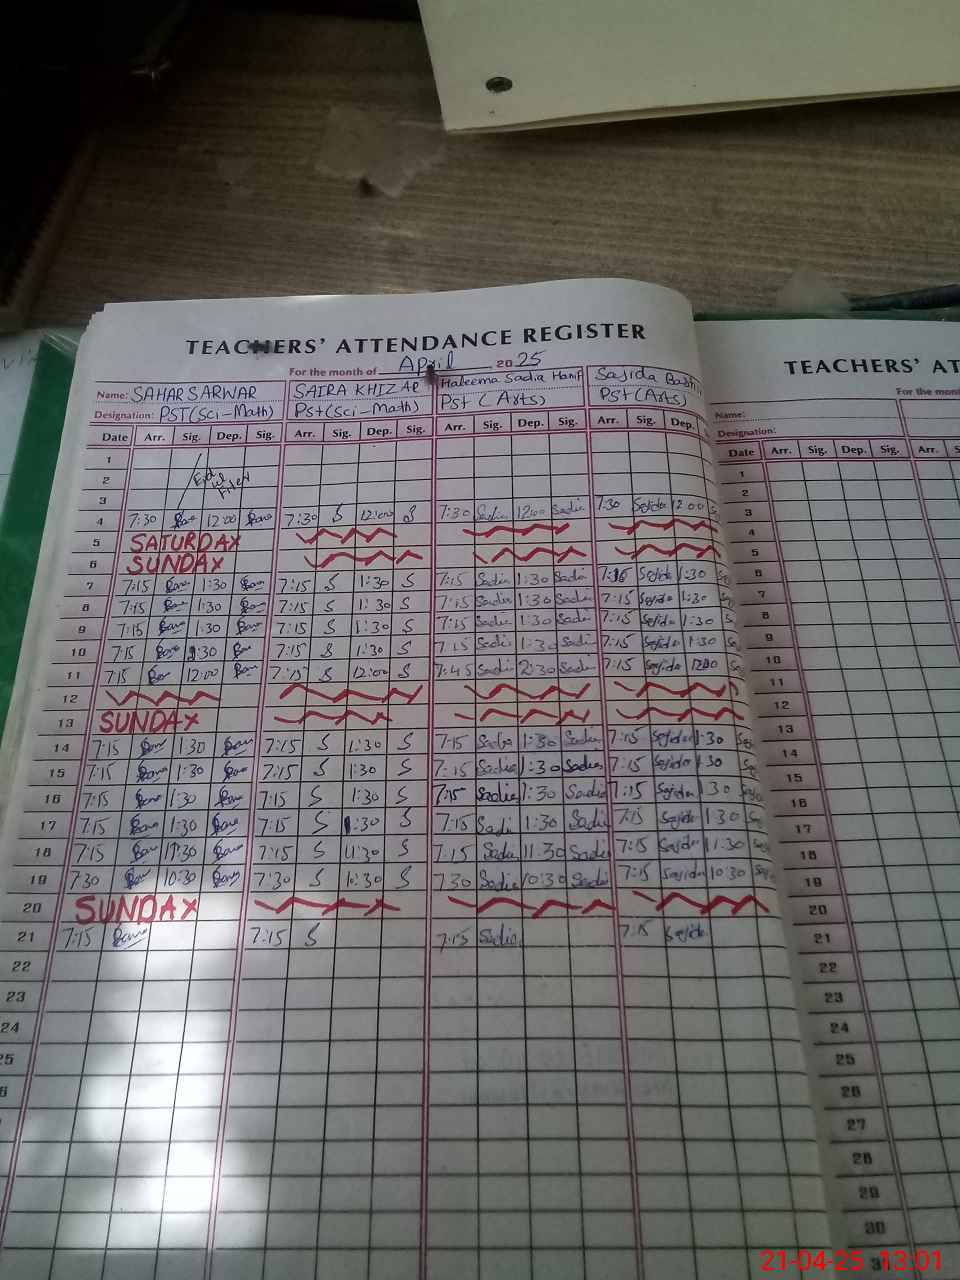 TEACHERS' ATTENDANCE REGISTER
For the month of April 2025
Name: SAHAR SARWAR SAIRA KHIZAR Haleema Sadia Hanif Sajida Bashi
Designation: PST(Sci-Math) Pst(Sci-Math) Pst (Arts) Pst(Arts)
Date Arr. Sig. Dep. Sig. Arr. Sig. Dep. Sig. Arr. Sig. Dep. Sig. Arr. Sig. Dep.
1
2
3
4 7:30 12:00 7:30 S 12:00 S 7:30 Sadia 12:00 Sadia 7:30 Sajida 12:00
5 SATURDAY
6 SUNDAY
7 7:15 1:30 7:15 S 1:30 S 7:15 Sadia 1:30 Sadia 7:15 Sajida 1:30
8 7:15 1:30 7:15 S 1:30 S 7:15 Sadia 1:30 Sadia 7:15 Sajida 1:30
9 7:15 1:30 7:15 S 1:30 S 7:15 Sadia 1:30 Sadia 7:15 Sajida 1:30
10 7:15 1:30 7:15 S 1:30 S 7:15 Sadia 1:30 Sadia 7:15 Sajida 1:30
11 7:15 12:00 7:15 S 12:00 S 7:45 Sadia 2:30 Sadia 7:15 Sajida 1200
12
13 SUNDAY
14 7:15 1:30 7:15 S 1:30 S 7:15 Sadia 1:30 Sadia 7:15 Sajida 1:30
15 7:15 1:30 7:15 S 1:30 S 7:15 Sadia 1:30 Sadia 7:15 Sajida 1:30
16 7:15 1:30 7:15 S 1:30 S 7:15 Sadia 1:30 Sadia 7:15 Sajida 1:30
17 7:15 1:30 7:15 S 1:30 S 7:15 Sadia 1:30 Sadia 7:15 Sajida 1:30
18 7:15 11:30 7:15 S 11:30 S 7:15 Sadia 11:30 Sadia 7:15 Sajida 11:30
19 7:30 10:30 7:30 S 10:30 S 7:30 Sadia 10:30 Sadia 7:15 Sajida 10:30
20 SUNDAY
21 7:15 7:15 S 7:15 Sadia 7:15 Sajida
22
23
24
25
TEACHERS' AT
For the mon
Name:
Designation:
Date Arr. Sig. Dep. Sig. Arr. S
1
2
3
4
5
6
7
8
9
10
11
12
13
14
15
16
17
18
19
20
21
22
23
24
25
26
27
28
29
30
21-04-25 13:01